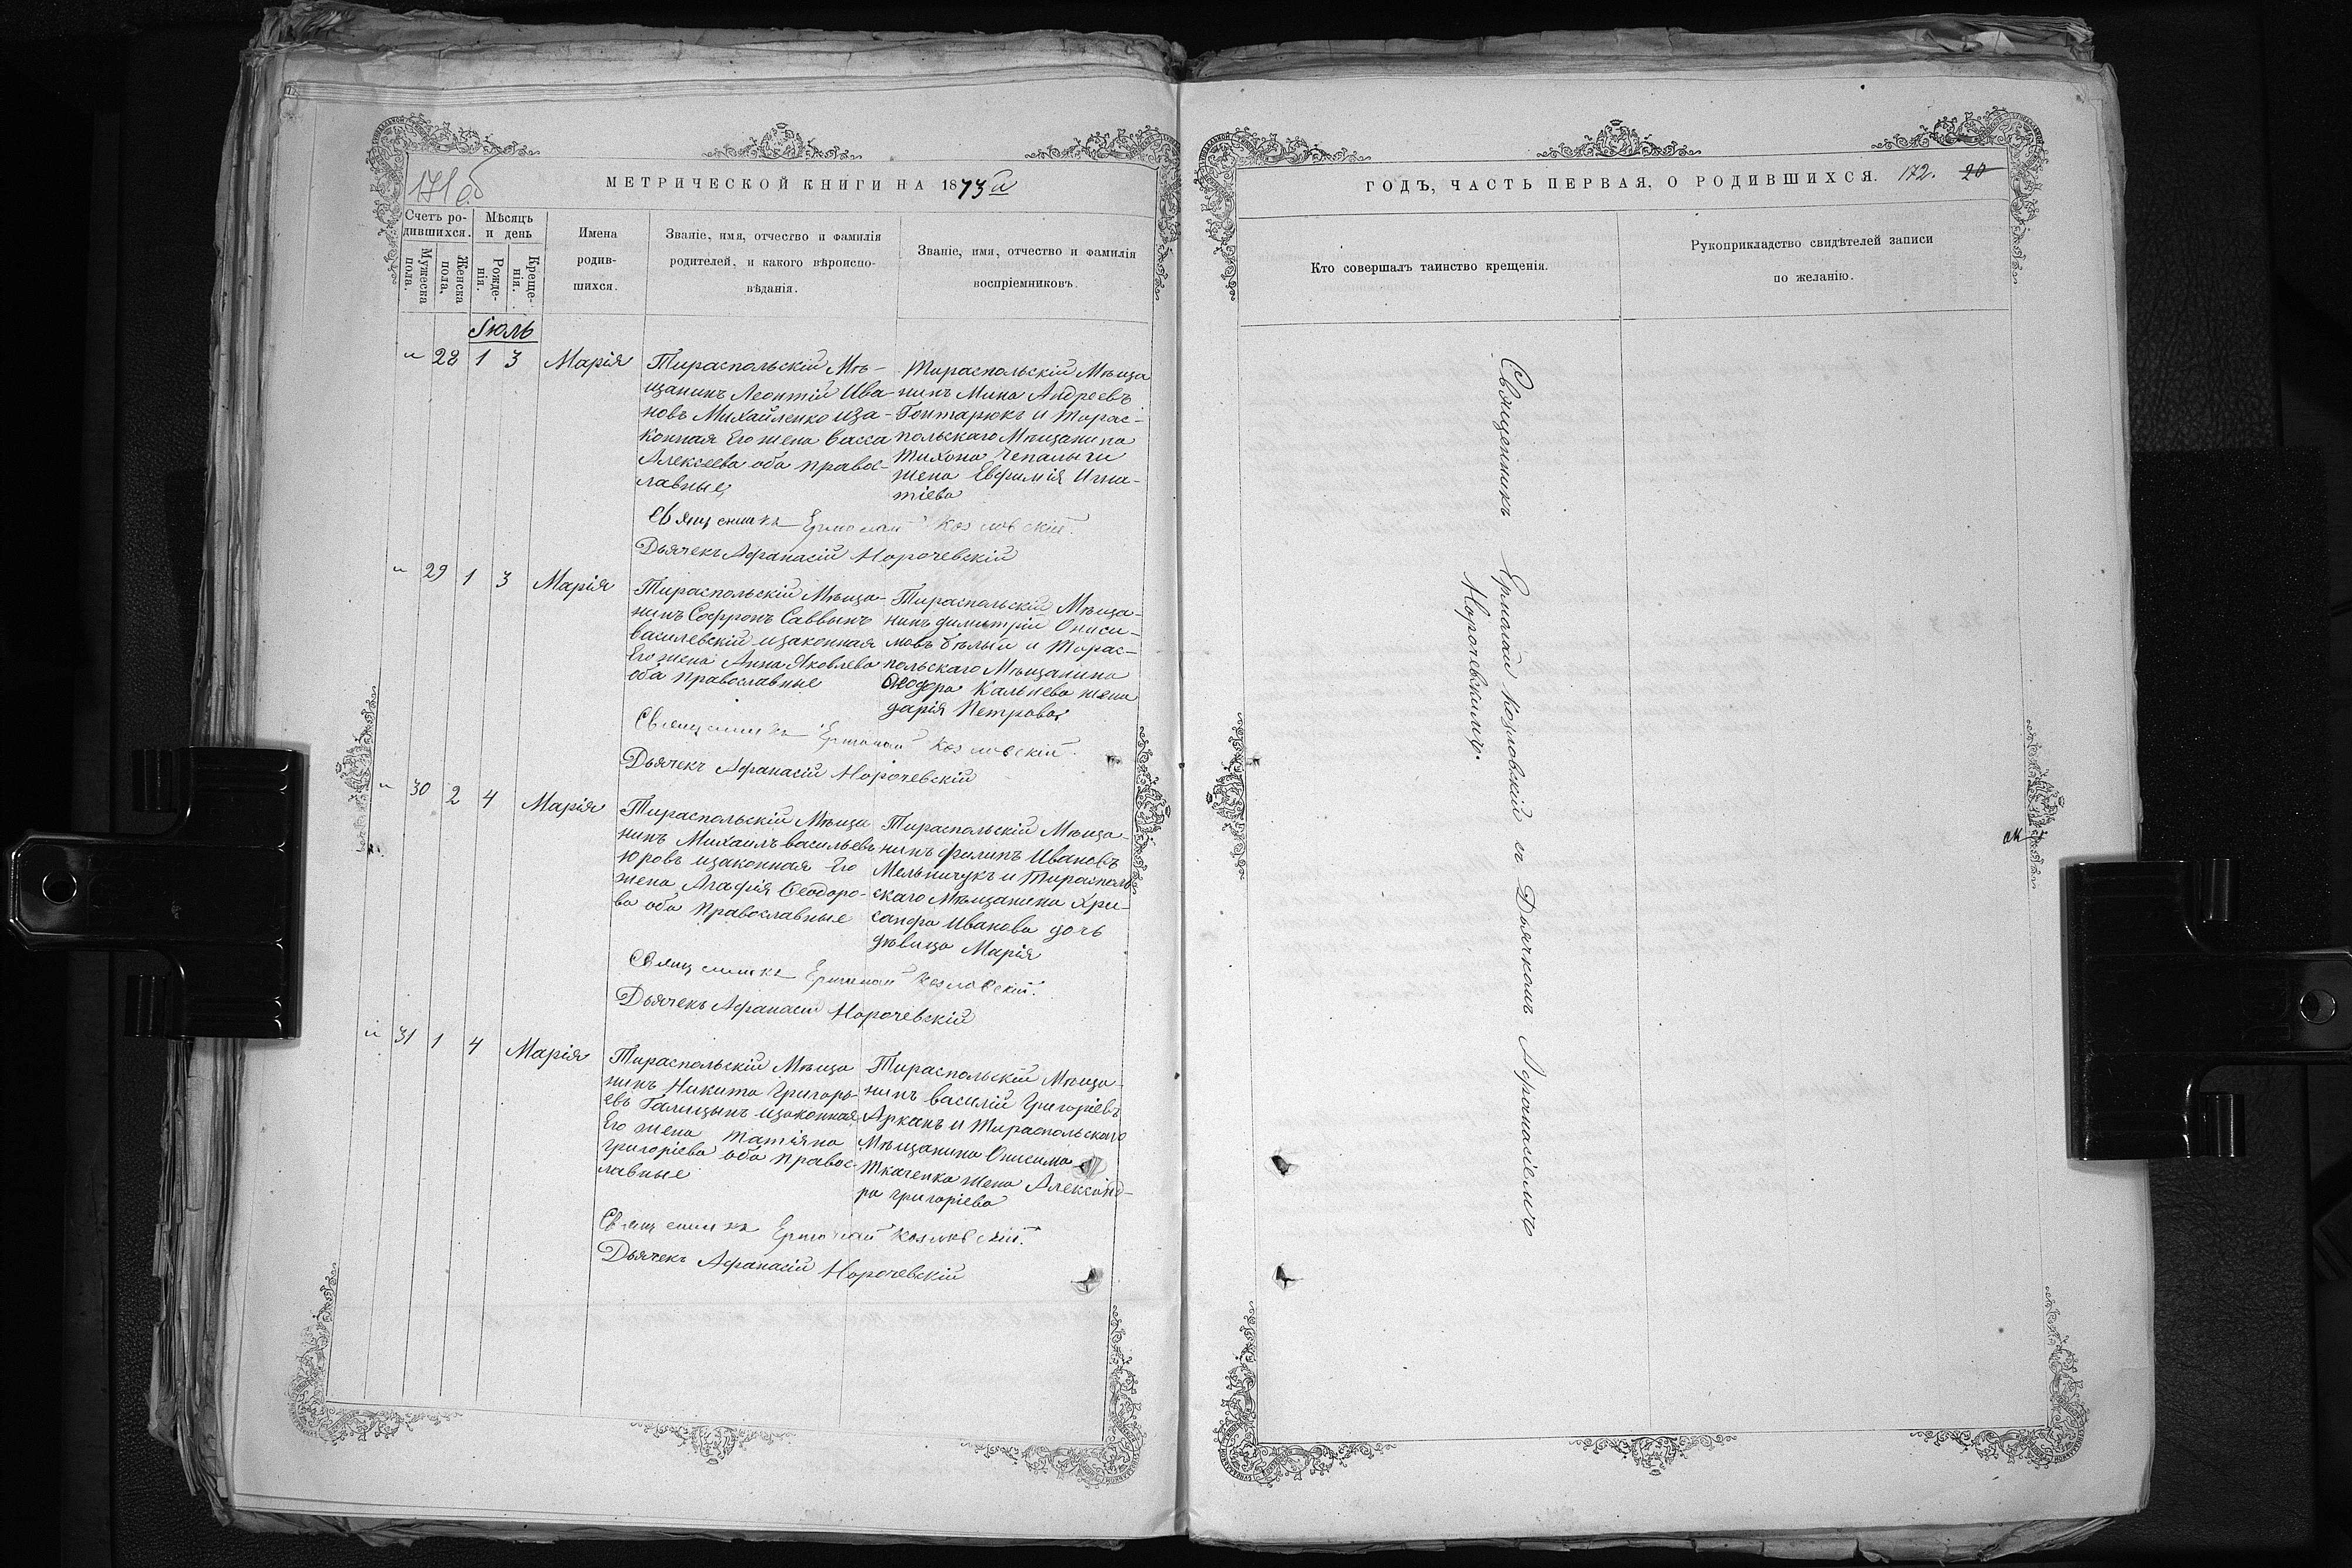 171 об
МЕТРИЧЕСКОЙ КНИГИ НА 1873й
Счетъ ро-
дившихся.
Мужеска
пола.
Женска
пола.
Мѣсяцъ
и день
Рожде-
нія.
Креще-
нія.
Имена
родив-
шихся.
Званіе, имя, отчество и фамилія
родителей, и какого вѣроиспо-
вѣданія.
Званіе, имя, отчество и фамилія
воспріемниковъ.
Іюль
" 28 1 3 Марія
Тираспольскій Мѣ-
щанинъ Леонтій Ива-
новъ Михайленко иза-
конная Его жена Васса
Алексеева оба право-
славные
Тираспольскій Мѣща
нинъ Мина Андреевъ
Гонтарюкъ и Тирас-
польскаго Мѣщанина
Тихона Чепалыги
жена Евфимія Игна-
тіева
Священникъ Ермолай Козловскій.
Дьячекъ Афанасій Норочевскій
" 29 1 3 Марія
Тираспольскій Мѣща-
нинъ Софронъ Саввынъ
Василевскій изаконная
Его жена Анна Яковлева
оба православные
Тираспольскій Мѣща-
нинъ Димитрій Ониси-
мовъ Бѣлый и Тирас-
польскаго Мѣщанина
Феодора Кальнева жена
Дарія Петрова
Священникъ Ермолай Козловскій
Дьячекъ Афанасій Норочевскій
" 30 2 4 Марія
Тираспольскій Мѣща
нинъ Михаилъ Васильевъ
Юровъ изаконная Его
жена Агафія Феодоро-
ва оба православные
Тираспольскій Мѣща-
нинъ Филипъ Ивановъ
Мельничукъ и Тирасполь
скаго Мѣщанина Хри-
санфа Иванова дочь
дѣвица Марія
Священникъ Ермолай Козловскій.
Дьячекъ Афанасій Норочевскій
" 31 1 4 Марія
Тираспольскій Мѣща
нинъ Никита Григорь-
евъ Галицынъ изаконная
Его жена Татіяна
Григоріева оба правос-
лавные
Тираспольскій Мѣща-
нинъ Василій Григоріевъ
Арканъ и Тираспольскаго
Мѣщанина Онисима
Ткаченка жена Александ-
ра Григоріева
Священникъ Ермолай Козловскій.
Дьячекъ Афанасій Норочевскій
ГОДЪ, ЧАСТЬ ПЕРВАЯ, О РОДИВШИХСЯ. 172. 20
Кто совершалъ таинство крещенія.
Рукоприкладство свидѣтелей записи
по желанію.
Священникъ Ермолай Козловскій съ Дьячкомъ Афанасіемъ
Норочевскимъ.